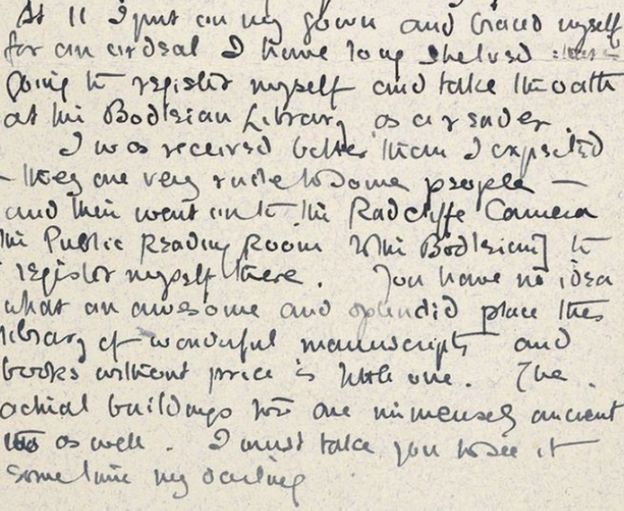 At 11 I put on my gown and braced myself
for an ordeal I have long shelved
going to register myself and take the oath
at the Bodleian Library as a reader.
I was received better than I expected
– they are very rude to some people –
and then went on to the Radcliffe Camera
the Public Reading Room to the Bodleian] to
register myself there. You have no idea
what an awesome and splendid place this
library of wonderful manuscripts and
books without price is to one. The
actual buildings are immensely ancient
as well. I must take you to see it
sometime my darling